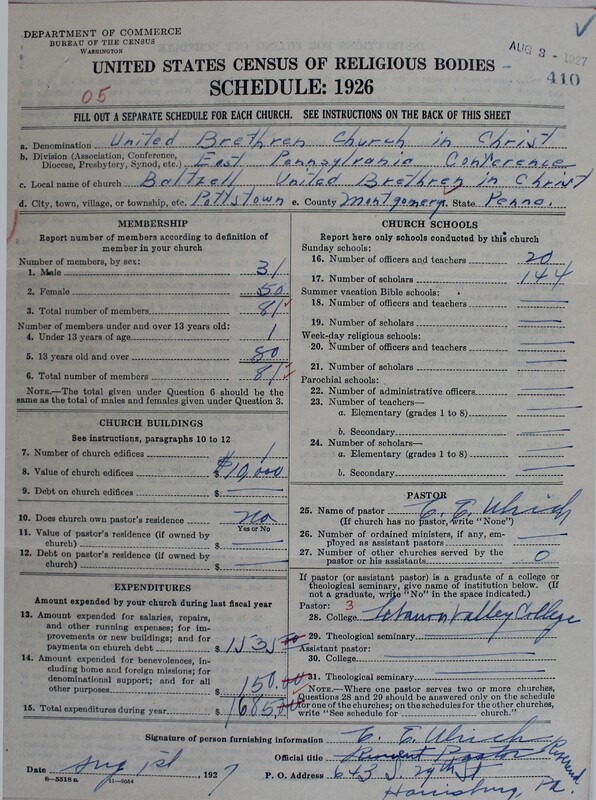 DEPARTMENT OF COMMERCE
BUREAU OF THE CENSUS
WASHINGTON
AUG 3 - 1927
410
UNITED STATES CENSUS OF RELIGIOUS BODIES
SCHEDULE: 1926
05
FILL OUT A SEPARATE SCHEDULE FOR EACH CHURCH. SEE INSTRUCTIONS ON THE BACK OF THIS SHEET
a. Denomination United Brethren Church in Christ
b. Division (Association, Conference, Diocese, Presbytery, Synod, etc.) East Pennsylvania Conference
c. Local name of church Baltzell United Brethren in Christ
d. City, town, village, or township, etc. Pottstown e. County Montgomery State Penna.
MEMBERSHIP
Report number of members according to definition of
member in your church
Number of members, by sex:
1. Male 31
2. Female 50
3. Total number of members 81
Number of members under and over 13 years old:
4. Under 13 years of age 1
5. 13 years old and over 80
6. Total number of members 81
NOTE.—The total given under Question 6 should be
same as the total of males and females given under Question 3.
CHURCH BUILDINGS
See instructions, paragraphs 10 to 12
7. Number of church edifices 1
8. Value of church edifices $10,000
9. Debt on church edifices $
10. Does church own pastor's residence no
Yes or No
11. Value of pastor's residence (if owned by
church) $
12. Debt on pastor's residence (if owned by
church) $
EXPENDITURES
Amount expended by your church during last fiscal year
13. Amount expended for salaries, repairs,
and other running expenses; for im-
provements or new buildings; and for
payments on church debt $1535.00
14. Amount expended for benevolences, in-
cluding home and foreign missions; for
denominational support; and for all
other purposes $150.00
15. Total expenditures during year $1685.
CHURCH SCHOOLS
Report here only schools conducted by this church
Sunday schools:
16. Number of officers and teachers 20
17. Number of scholars 144
Summer vacation Bible schools:
18. Number of officers and teachers
19. Number of scholars
Week-day religious schools:
20. Number of officers and teachers
21. Number of scholars
Parochial schools:
22. Number of administrative officers
23. Number of teachers—
a. Elementary (grades 1 to 8)
b. Secondary
24. Number of scholars—
a. Elementary (grades 1 to 8)
b. Secondary
PASTOR
25. Name of pastor C. E. Ulrich
(If church has no pastor, write "None")
26. Number of ordained ministers, if any, em-
ployed as assistant pastors
27. Number of other churches served by the
pastor or his assistants 0
If pastor (or assistant pastor) is a graduate of a college or
theological seminary, give name of institution below. (If
not a graduate, write "No" in the space indicated.)
Pastor: 3
28. College Lebanon Valley College
29. Theological seminary
Assistant pastor:
30. College
31. Theological seminary
NOTE.—Where one pastor serves two or more churches,
Questions 28 and 29 should be answered only on the schedule
for one of the churches; on the schedules for the other churches,
write "See schedule for church."
Signature of person furnishing information C. E. Ulrich
Official title Pastor
Date Aug 1st, 1927 P. O. Address 643 S. 29th St
Harrisburg, Pa.
8-5518a 11-9054